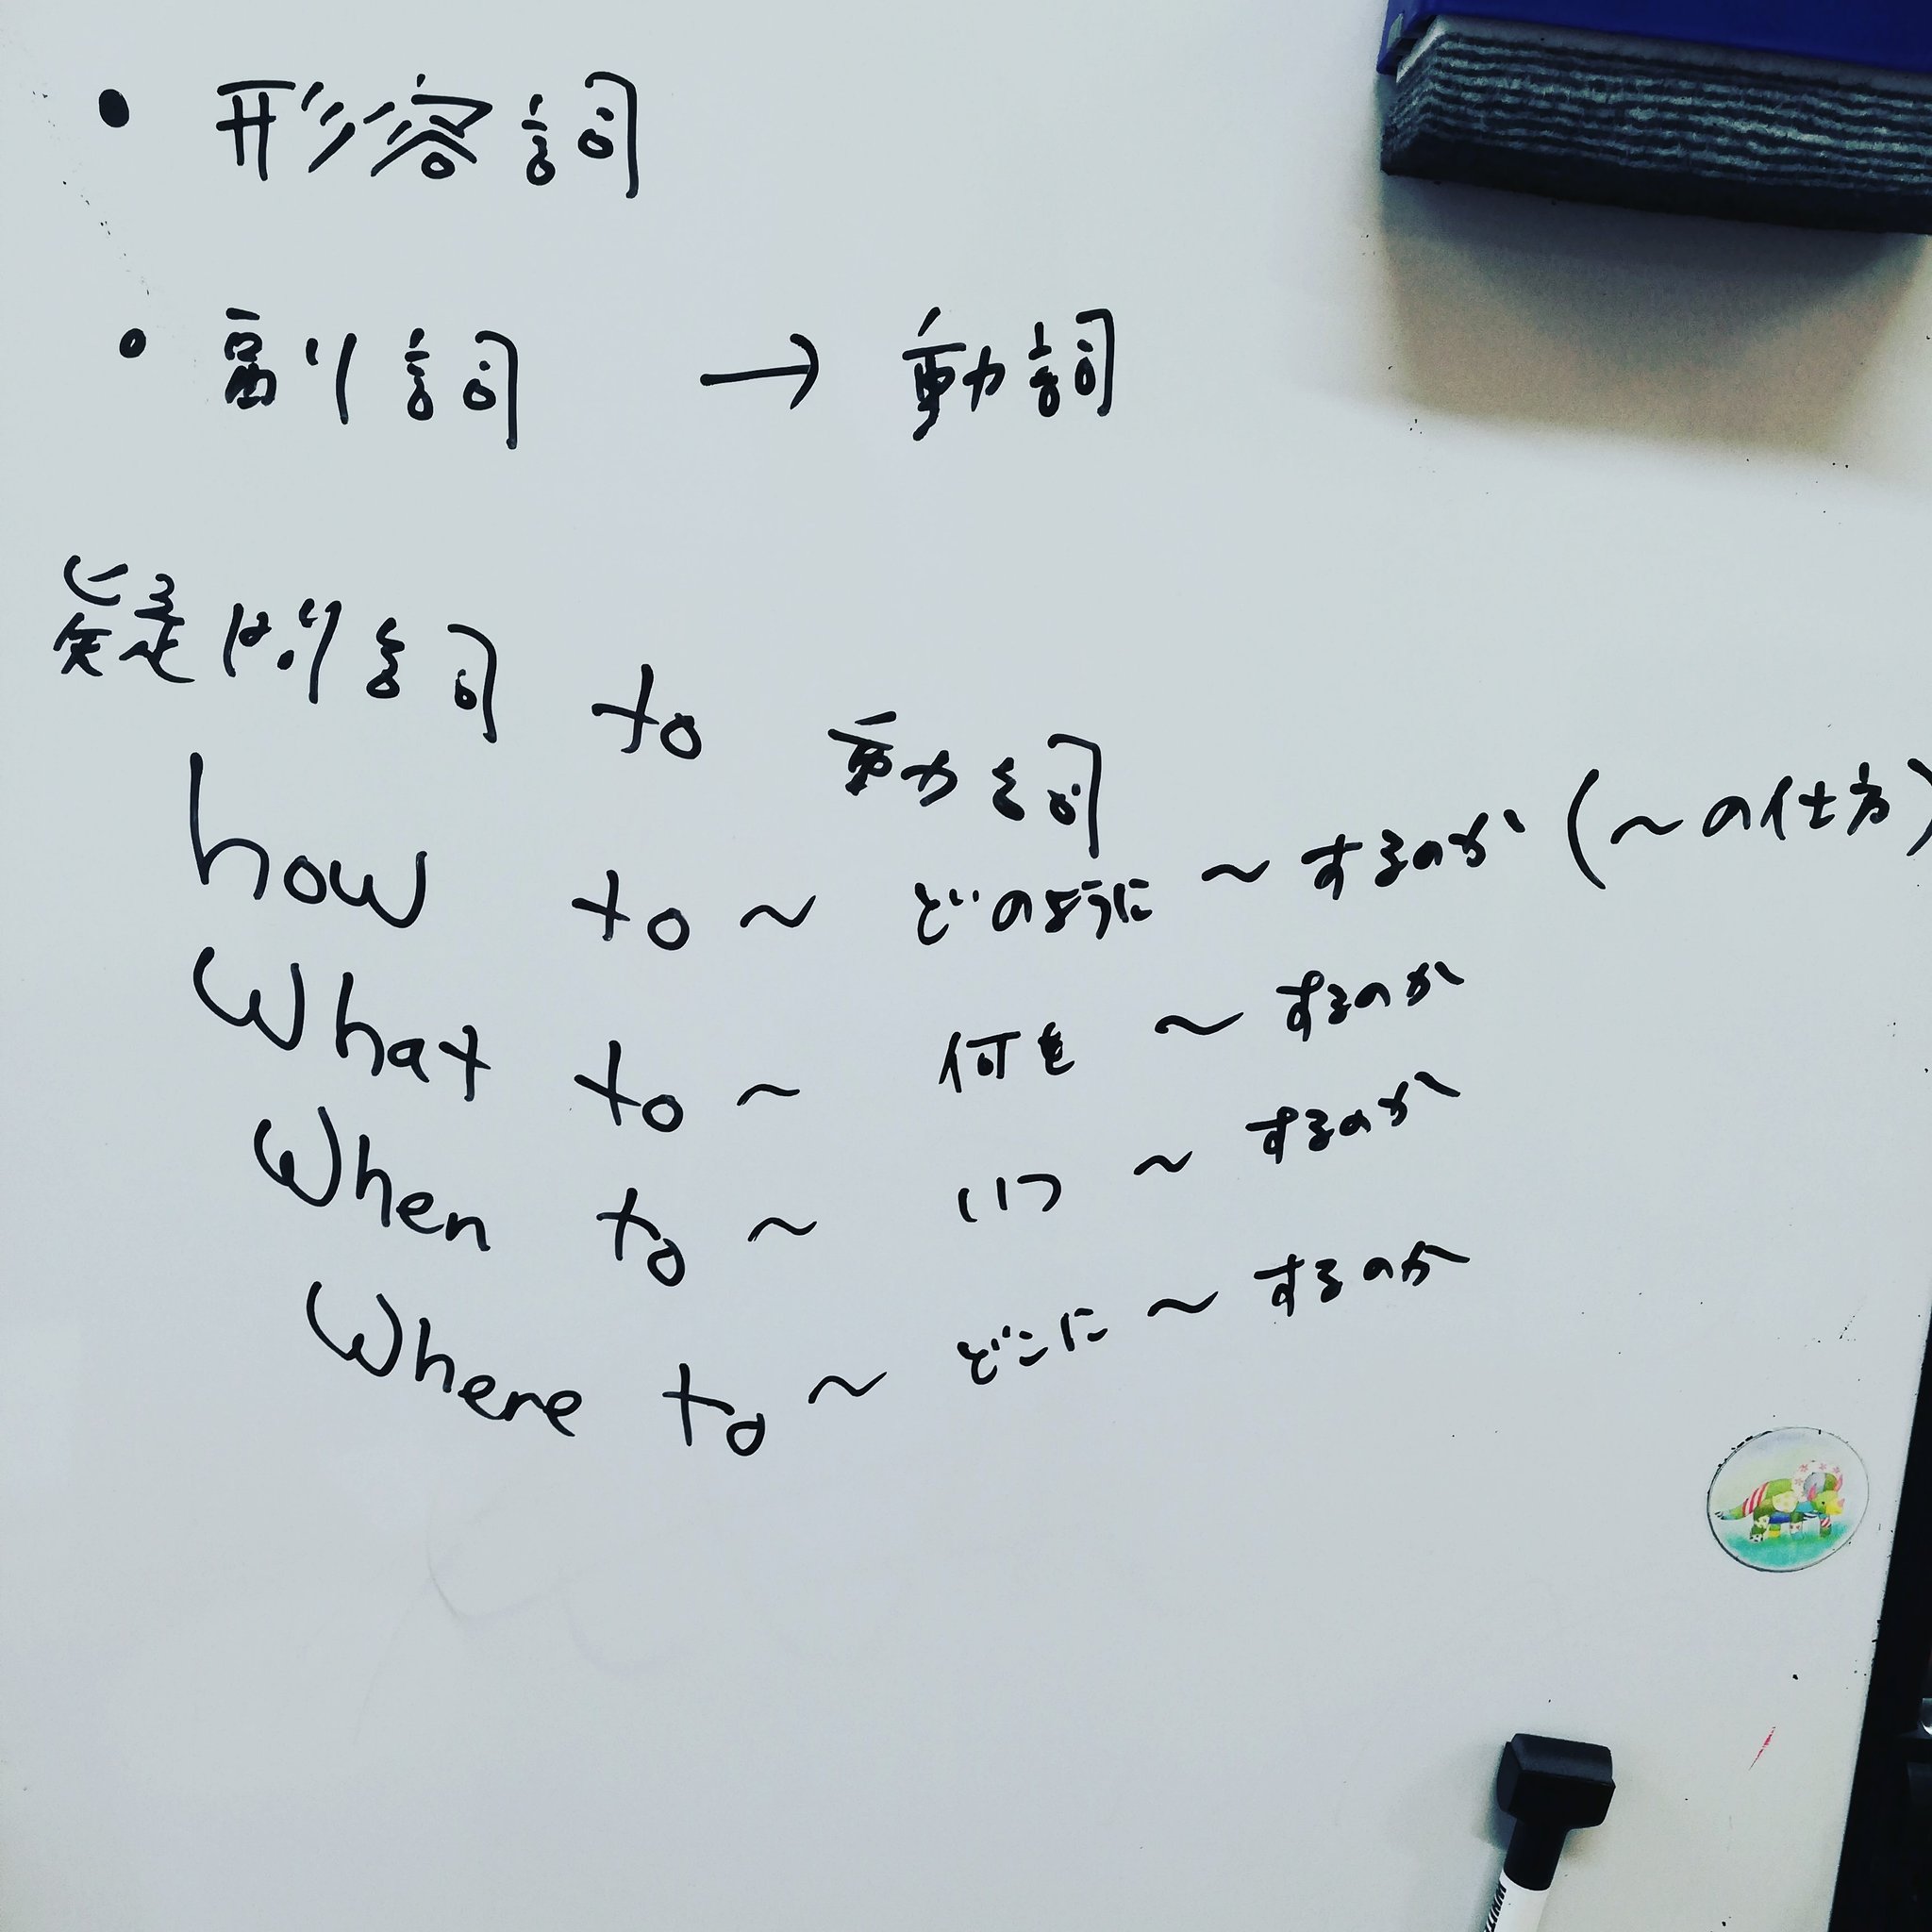 • 形容詞
• 副詞 → 動詞
疑問詞 to 動詞
how to ~ どのように ~ するのか (~の仕方)
What to ~ 何を ~ するのか
When to ~ いつ ~ するのか
Where to ~ どこに ~ するのか